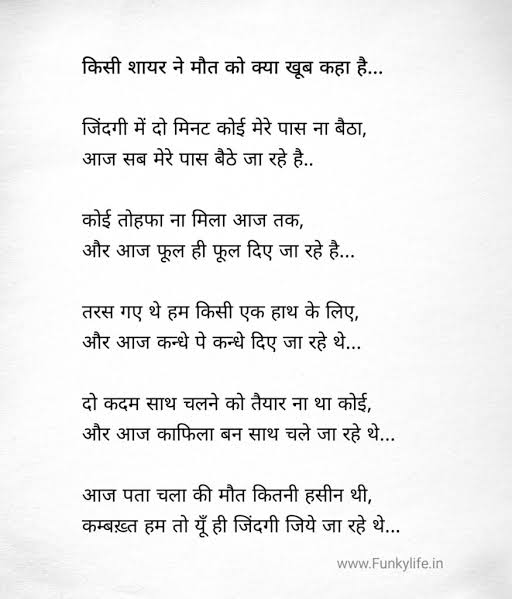 किसी शायर ने मौत को क्या खूब कहा है...
जिंदगी में दो मिनट कोई मेरे पास ना बैठा,
आज सब मेरे पास बैठे जा रहे है..
कोई तोहफा ना मिला आज तक,
और आज फूल ही फूल दिए जा रहे है...
तरस गए थे हम किसी एक हाथ के लिए,
और आज कन्धे पे कन्धे दिए जा रहे थे...
दो कदम साथ चलने को तैयार ना था कोई,
और आज काफिला बन साथ चले जा रहे थे...
आज पता चला की मौत कितनी हसीन थी,
कम्बख़्त हम तो यूँ ही जिंदगी जिये जा रहे थे...
www.Funkylife.in